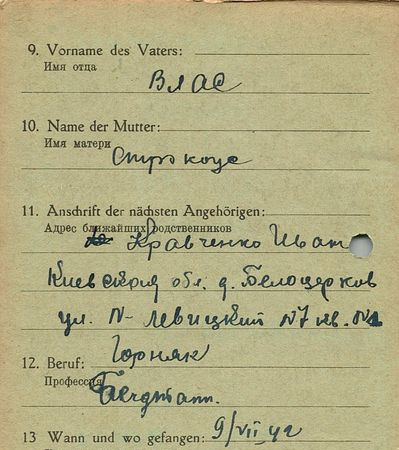 9. Vorname des Vaters:
Имя отца
Влас
10. Name der Mutter:
Имя матери
11. Anschrift der nächsten Angehörigen:
Адрес ближайших родственников
Кравченко Иван
Киевская обл. д. Белоцерков
ул. Н-Левицкий N7 кв. N1
12. Beruf: Горняк
Профессия
Bergmann.
13 Wann und wo gefangen: 9/VII 42